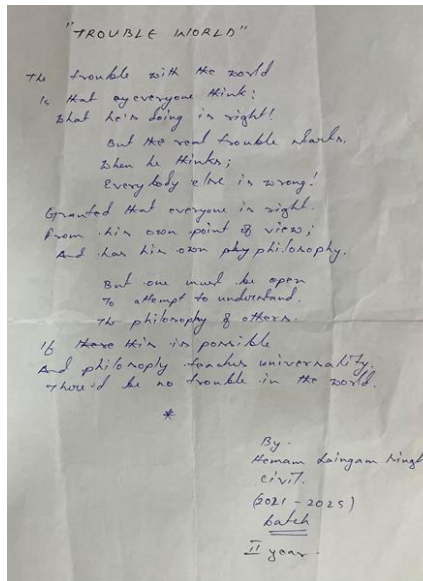 "TROUBLE WORLD"
The trouble with the world
Is that ayeveryone think;
What he's doing is right!
But the real trouble starts,
When he thinks;
Everybody else is wrong!
Granted that everyone is right.
From his own point of view;
And has his own phy philosophy.
But one must be open
To attempt to understand.
The philosophy of others.
If there this is possible
And philosophy teaches universality.
There'd be no trouble in the world.
*
By.
Hemam Laingam Singh
Civil.
(2021-2025)
batch
II year.